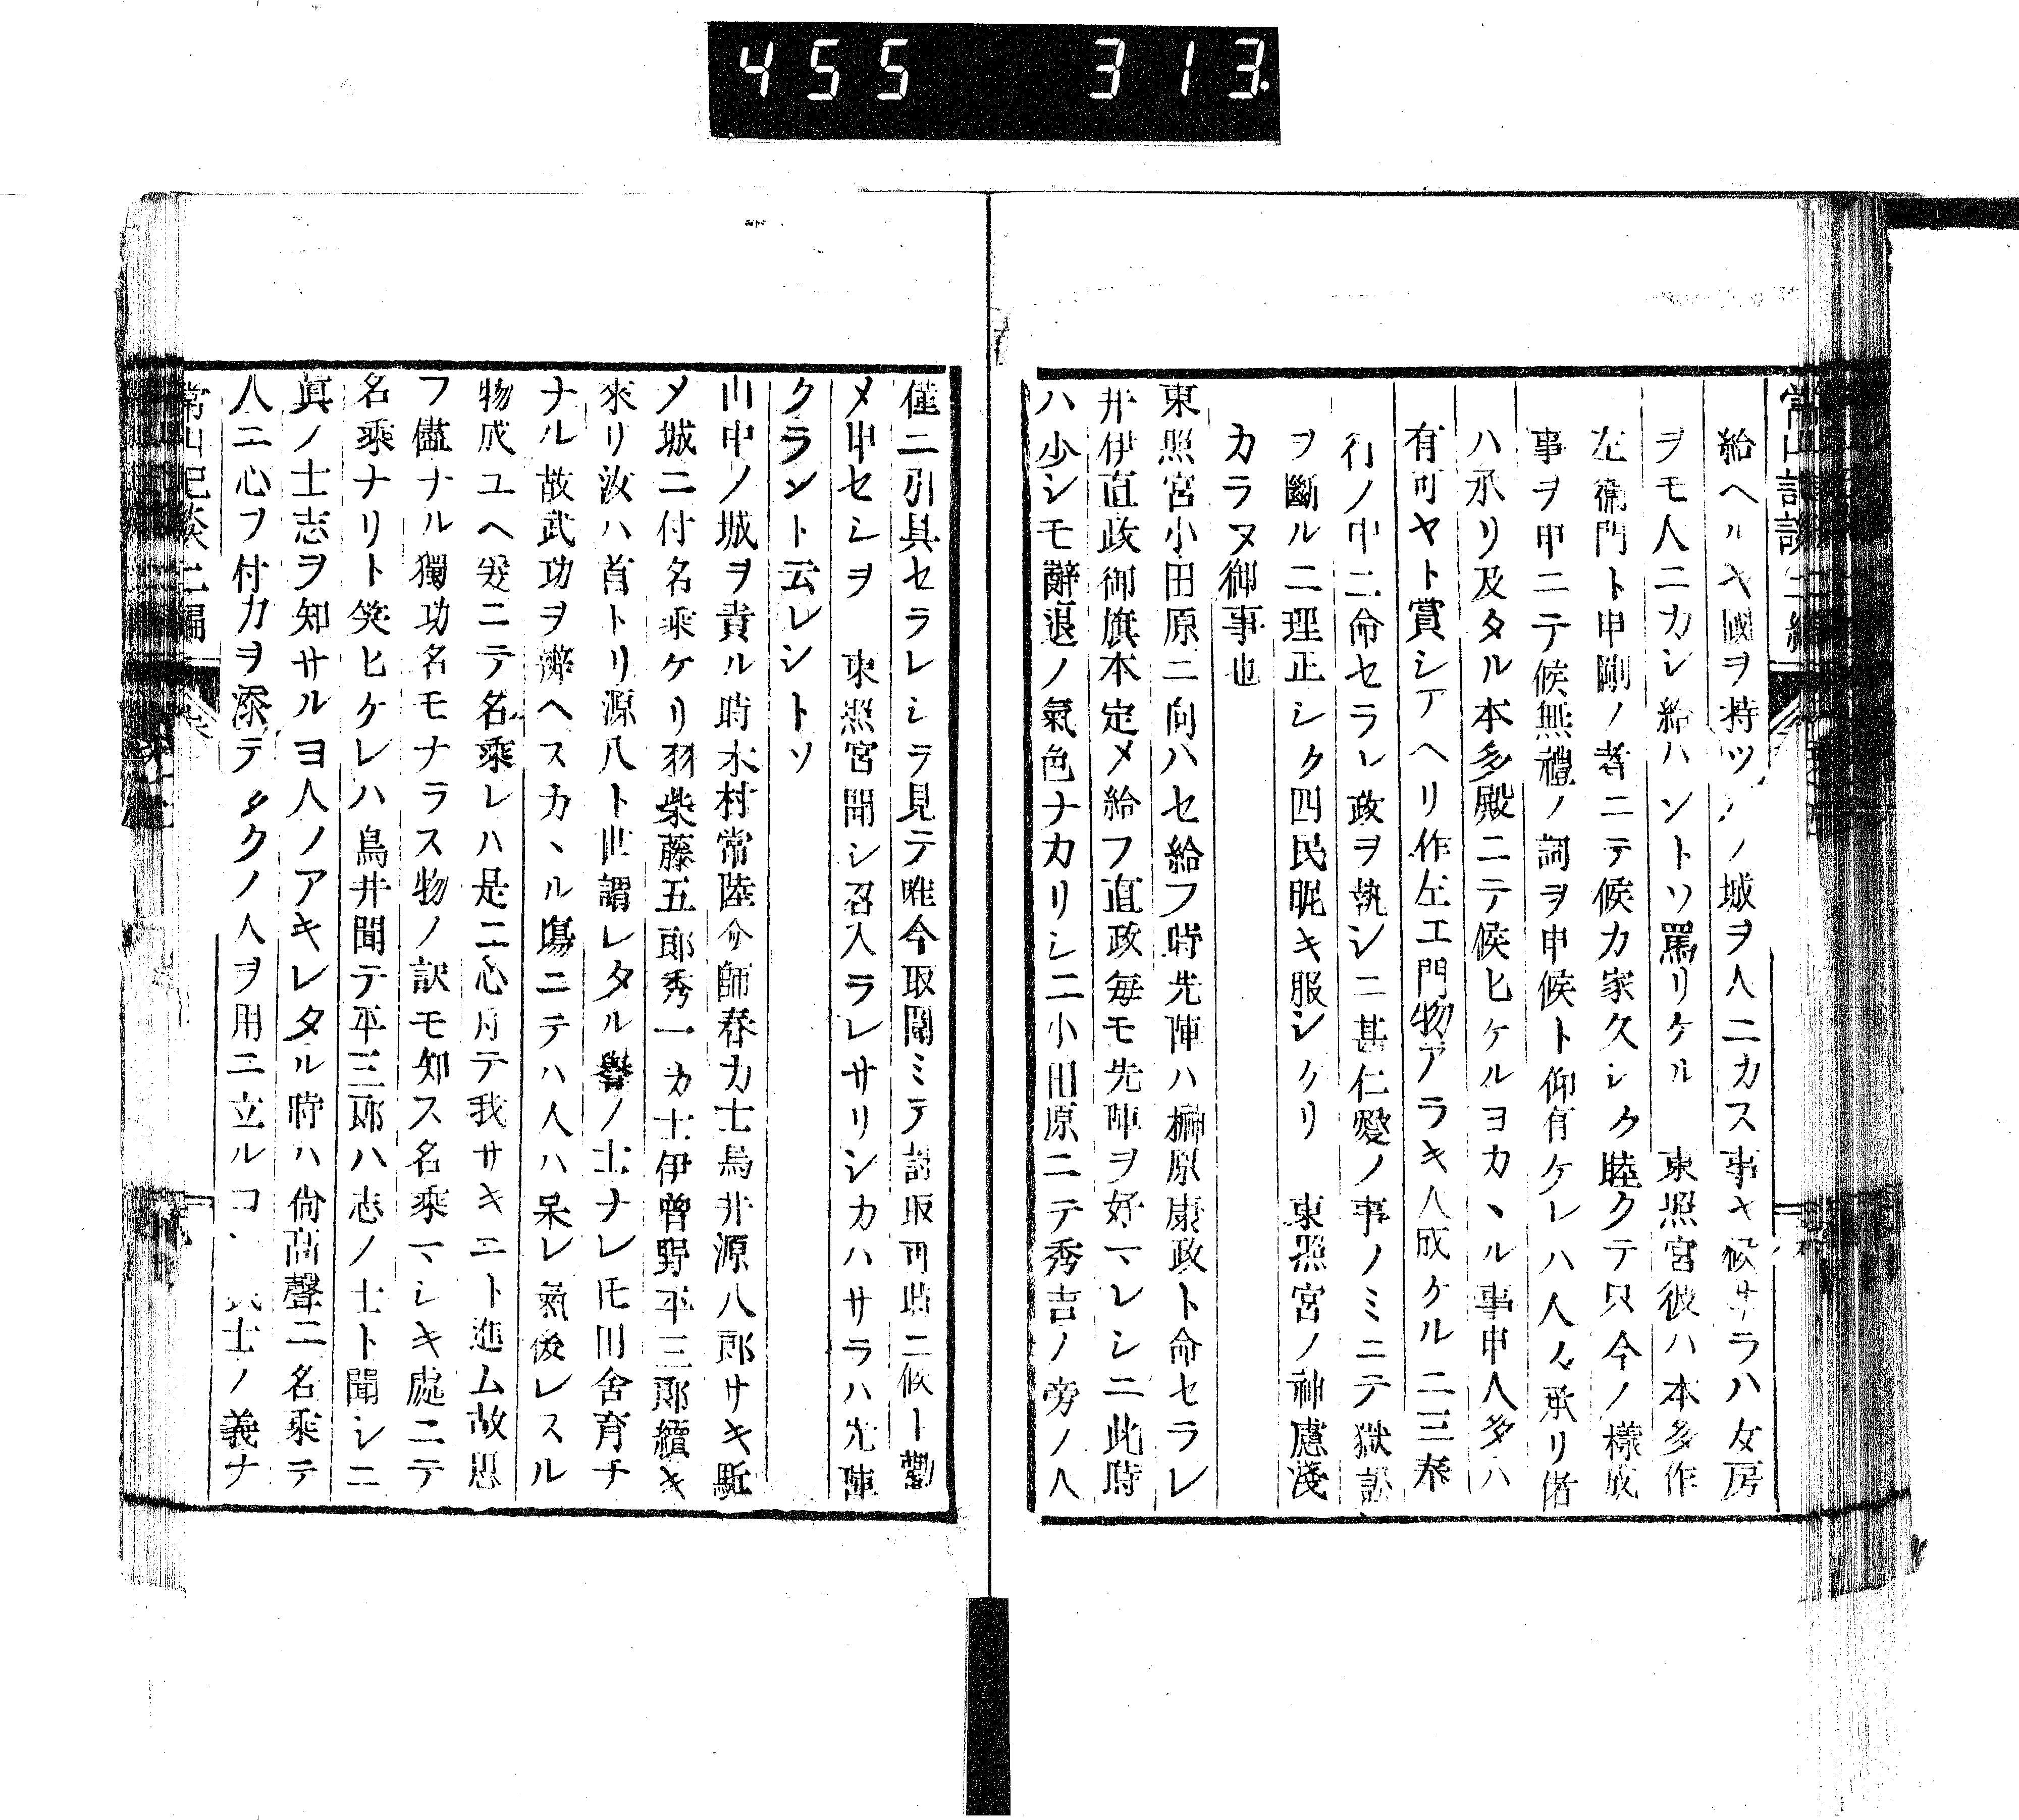 455 313
常山記談二編
給ヘルキ國ヲ持ツノ城ヲ人ニカス事キ候サラハ女房
ヲモ人ニカシ給ハントソ罵リケル 東照宮彼ハ本多作
左衞門ト申剛ノ者ニテ候カ家久シク睦クテ只今ノ樣成
事ヲ申ニテ候無禮ノ詞ヲ申候ト仰有ケレハ人々承リ偖
ハ承リ及タル本多殿ニテ候ヒケルヨカヽル事申人多ハ
有可ヤト賞シアヘリ作左エ門物アラキ人成ケル二三奉
行ノ中ニ命セラレ政ヲ執シニ甚仁愛ノ事ノミニテ獄訟
ヲ斷ルニ理正シク四民眤キ服シケリ 東照宮ノ神慮淺
カラヌ御事也
東照宮小田原ニ向ハセ給フ時先陣ハ榊原康政ト命セラレ
井伊直政御旗本定メ給フ直政毎モ先陣ヲ好マレシニ此時
ハ少シモ辭退ノ氣色ナカリシニ小田原ニテ秀吉ノ旁ノ人
僅ニ引具セラレシラ見テ唯今取圍ミテ討取可時ニ候ト勸
メ申セシヲ 東照宮聞シ召入ラレサリシカハサラハ先陣
クラント云レシトソ
山中ノ城ヲ責ル時木村常陸介師春カ士鳥井源八郎サキ駈
メ城ニ付名乘ケリ羽柴藤五郎秀一カ士伊曽野平三郎續キ
來リ汝ハ首トリ源八ト世謂レタル譽ノ士ナレ𪜈田舍育チ
ナル故武功ヲ辨ヘスカヽル塲ニテハ人ハ呆レ氣後レスル
物成ユヘ爰ニテ名乘レハ是ニ心月テ我サキニト進ム故思
フ儘ナル獨功名モナラス物ノ訳モ知ス名乘マシキ處ニテ
名乘ナリト笑ヒケレハ鳥井聞テ平三郎ハ志ノ士ト聞シニ
眞ノ士志ヲ知サルヨ人ノアキレタル時ハ尙高聲ニ名乘テ
人ニ心ヲ付力ヲ添テタクノ人ヲ用ニ立ルコ士ノ義ナ
常山記談二編